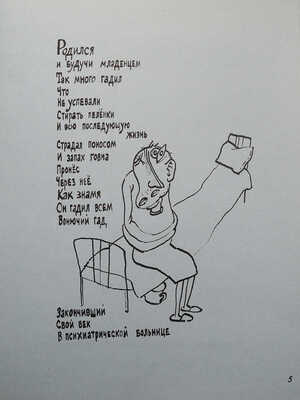 Родился
и будучи младенцем
Так много гадил
Что
Не успевали
Стирать пелёнки
И всю последующую
жизнь
Страдал поносом
И запах говна
Пронёс
Через неё
Как знамя
Он гадил всем
Вонючий гад,
Закончивший
Свой век
В психиатрической больнице
5